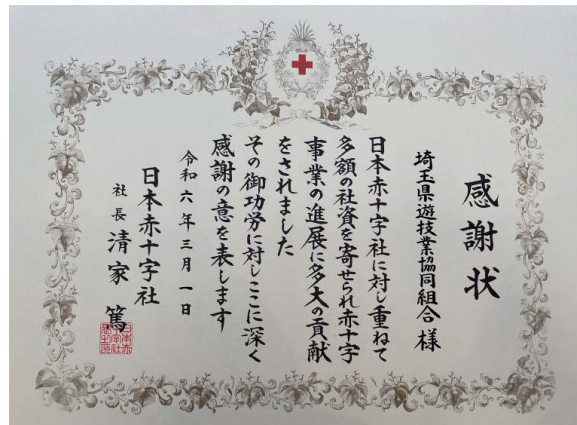 感謝状
埼玉県遊技業協同組合 様
日本赤十字社に対し重ねて
多額の社資を寄せられ赤十字
事業の進展に多大の貢献
をされました
その御功労に対しここに深く
感謝の意を表します
令和六年三月一日
日本赤十字社
社長 清家 篤